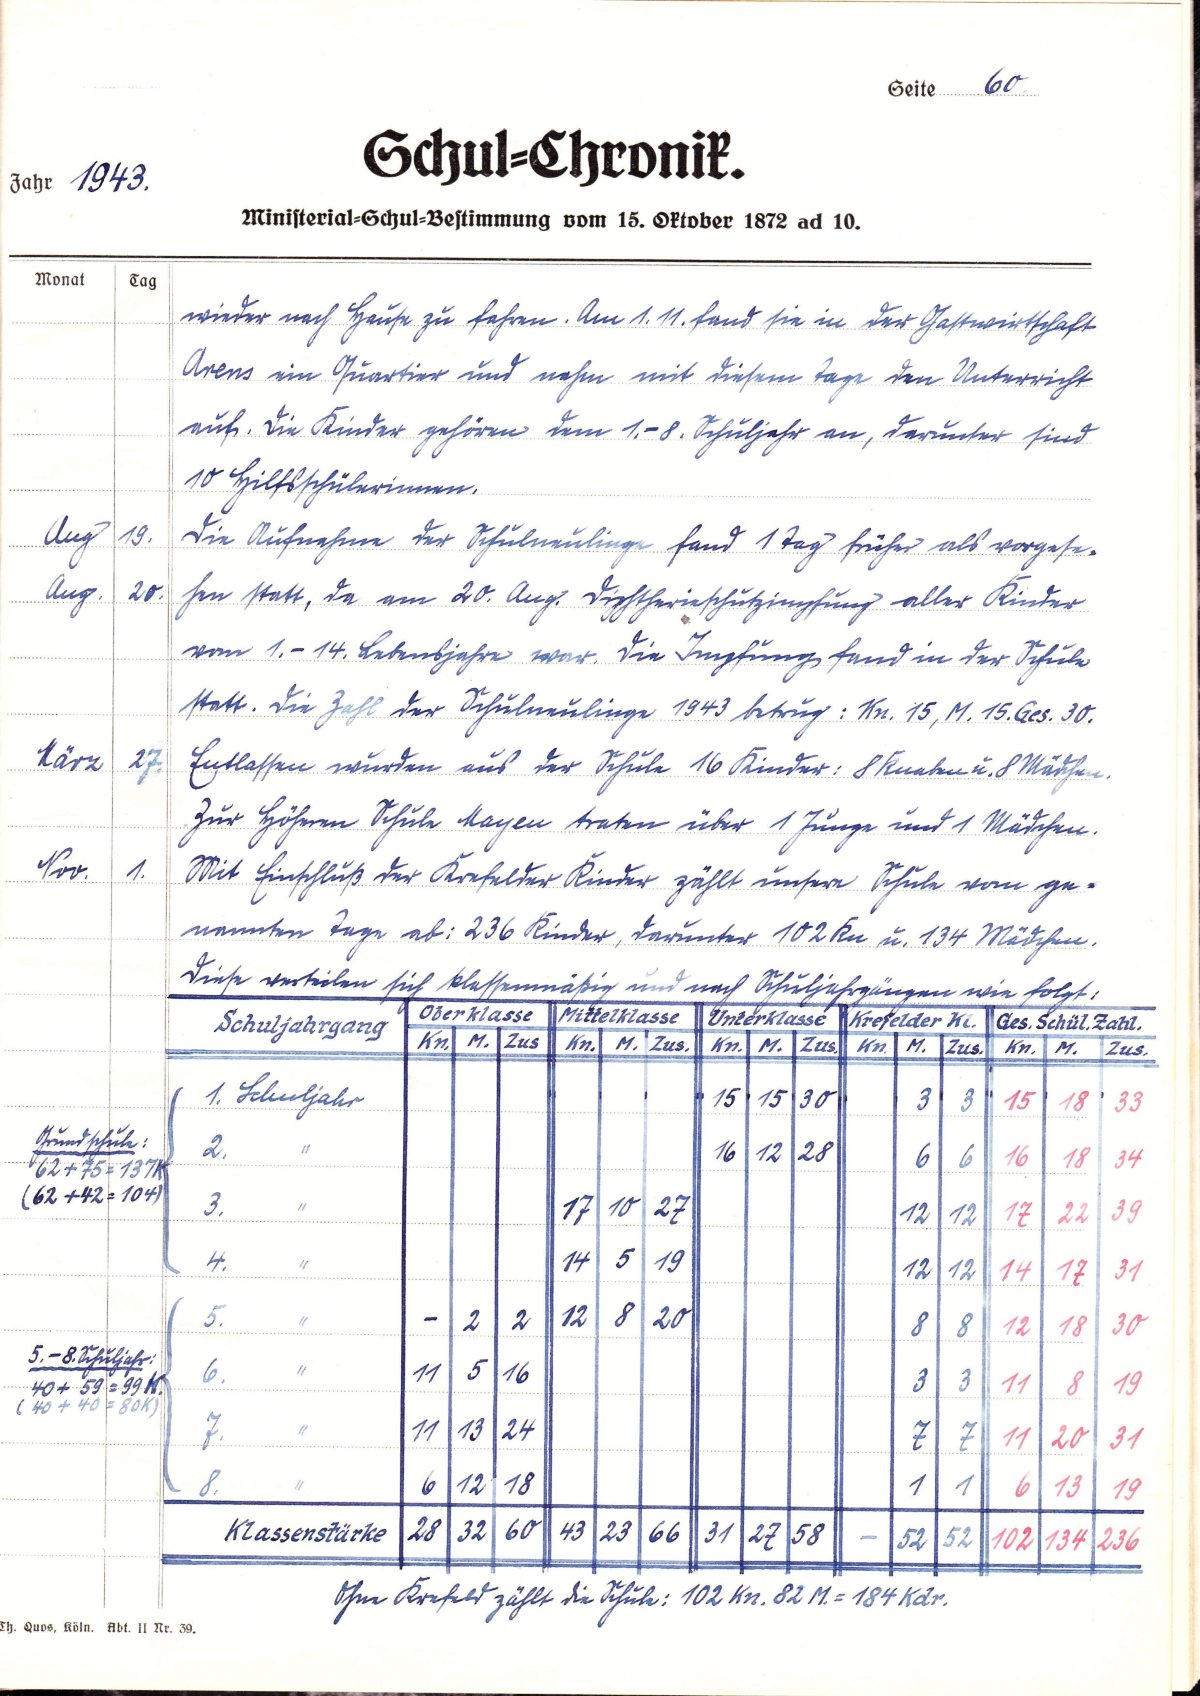 Seite 60.
Schul=Chronik.
Jahr 1943.
Ministerial=Schul=Bestimmung vom 15. Oktober 1872 ad 10.
Monat Tag
wieder nach Hause zu fahren. Am 1.11. fand sie in der Gastwirtschaft
Arens ein Quartier und nahm mit diesem Tage den Unterricht
auf. Die Kinder gehören dem 1.-8. Schuljahr an, darunter sind
10 Hilfsschülerinnen.
Aug 19. Die Aufnahme der Schulneulinge fand 1 Tag früher als vorgese-
Aug. 20. hen statt, da am 20. Aug. Diphtherieschutzimpfung aller Kinder
vom 1.-14. Lebensjahre war. Die Impfung fand in der Schule
statt. Die Zahl der Schulneulinge 1943 betrug: Kn. 15, M. 15. Ges. 30.
März 27. Entlassen wurden aus der Schule 16 Kinder: 8 Knaben u. 8 Mädchen.
Zur Höheren Schule Mayen traten über 1 Junge und 1 Mädchen.
Nov. 1. Mit Einschluß der Krefelder Kinder zählt unsere Schule vom ge-
nannten Tage ab: 236 Kinder, darunter 102 Kn u. 134 Mädchen.
Diese verteilen sich klassenmäßig und nach Schuljahrgängen wie folgt:
Schuljahrgang Oberklasse Mittelklasse Unterklasse Krefelder Kl. Ges. Schül. Zahl.
Kn. M. Zus Kn. M. Zus. Kn. M. Zus. Kn. M. Zus. Kn. M. Zus.
1. Schuljahr 15 15 30 3 3 15 18 33
Grundschule:
62+75=137K
(62+42=104)
2. " 16 12 28 6 6 16 18 34
3. " 17 10 27 12 12 17 22 39
4. " 14 5 19 12 12 14 17 31
5. " - 2 2 12 8 20 8 8 12 18 30
5.-8. Schuljahr:
40+59=99K.
(40+40=80K)
6. " 11 5 16 3 3 11 8 19
7. " 11 13 24 7 7 11 20 31
8. " 6 12 18 1 1 6 13 19
Klassenstärke 28 32 60 43 23 66 31 27 58 - 52 52 102 134 236
Ohne Krefeld zählt die Schule: 102 Kn. 82 M. = 184 Kdr.
Th. Quos, Köln. Abt. II Nr. 39.